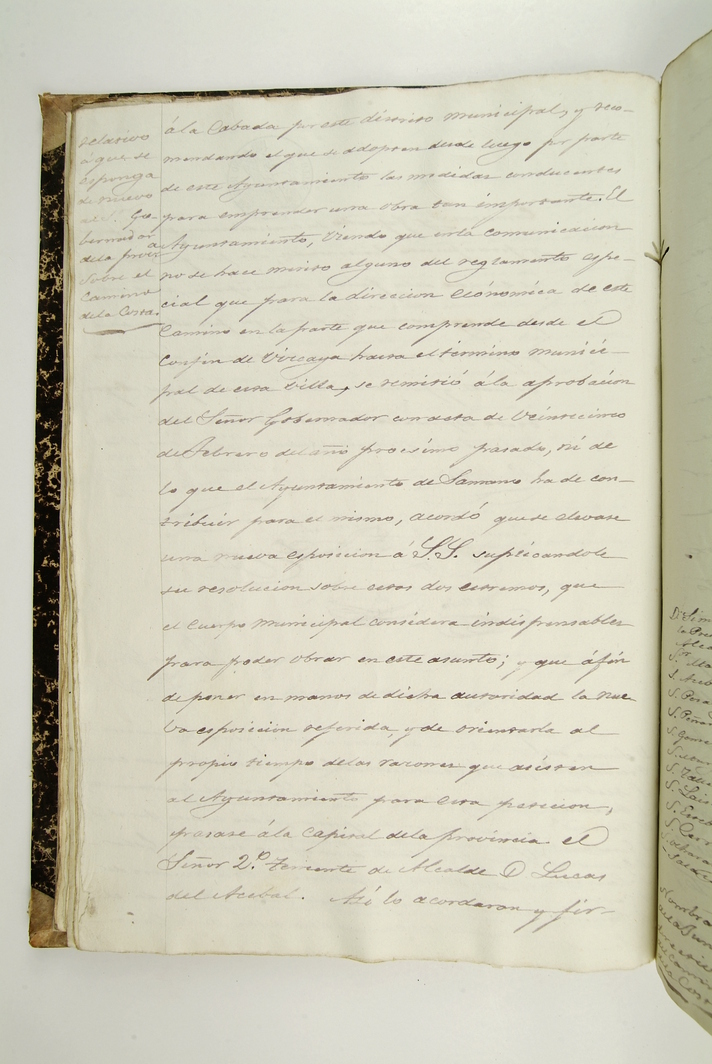 relativo
á que se
esponga
de nuevo
al S. Go-
bernador
de la prova
sobre el
Camino
de la Costa.
á la Cabada por este distrito municipal, y reco-
mendando el que se adopten desde luego por parte
de este Ayuntamiento las medidas conducentes
para emprender una obra tan importante. El
Ayuntamiento, viendo que en la comunicacion
no se hace merito alguno del reglamento espe-
cial que para la direccion económica de este
Camino en la parte que comprende desde el
confin de Vizcaya hasta el término munici-
pal de esta villa, se remitió á la aprobacion
del Señor Gobernador con acta de Veinticinco
de Febrero del año procsimo pasado, ni de
lo que el Ayuntamiento de Samano ha de con-
tribuir para el mismo, acordó que se elevase
una nueva esposicion á S.S. suplicandole
su resolucion sobre estos dos estremos, que
el Cuerpo municipal considera indispensables
para poder obrar en este asunto; y que áfin
de poner en manos de dicha autoridad la nue
va esposicion referida, y de orientarla al
propio tiempo de las razones que asisten
al Ayuntamiento para esta peticion,
pasase á la Capital de la provincia el
Señor 2.º Teniente de Alcalde D Lucas
del Acebal. Así lo acordaron y fir-